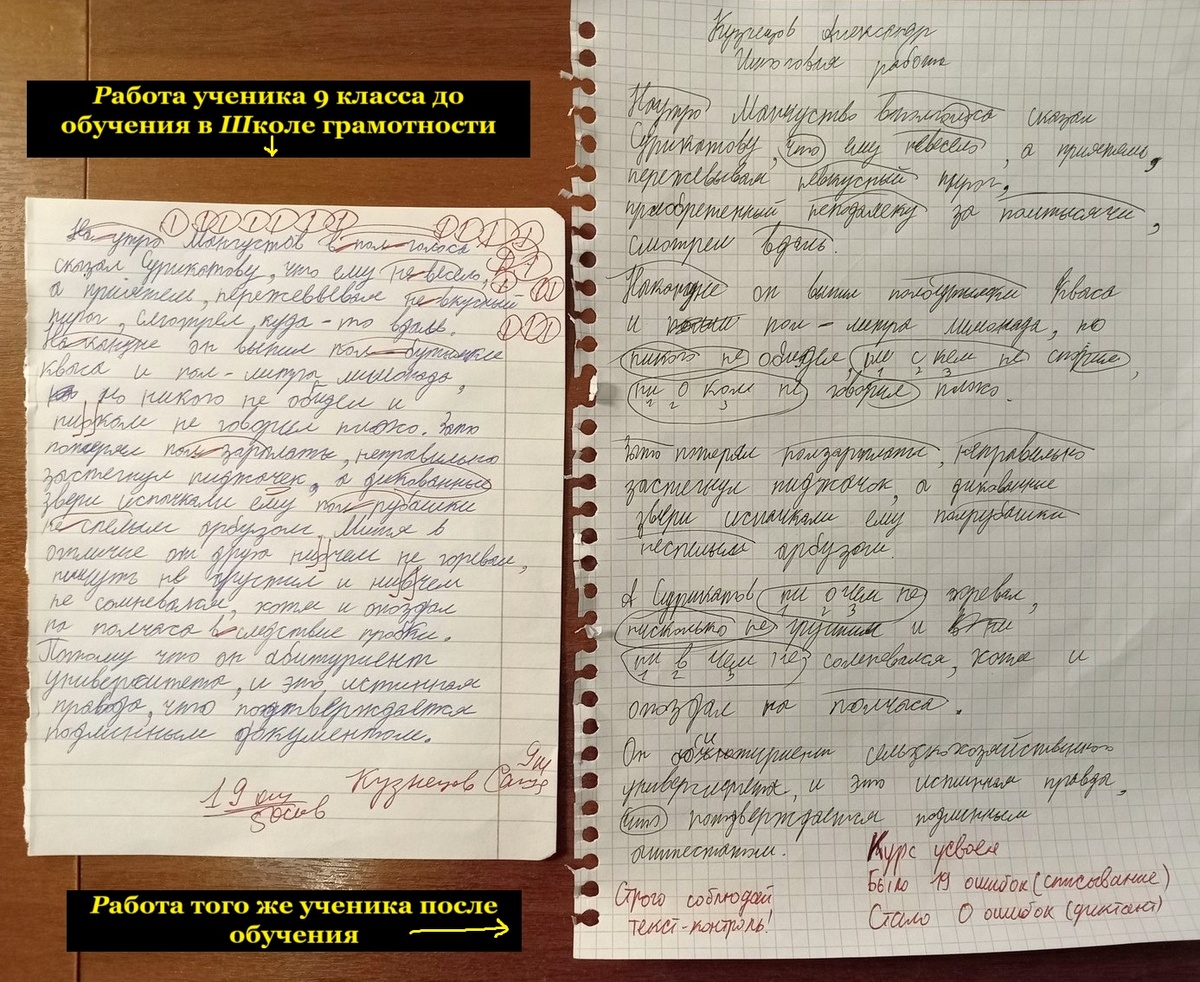 Работа ученика 9 класса до
обучения в Школе грамотности
На-утро Мангустов в пол-голоса
сказал Сурикатову, что ему не весело,
а приятель, пережеввывая не вкусный
пирог, смотрел куда-то вдаль.
На кануне он выпил пол-бутылке
кваса и пол-литра лимонада,
но никого не обидел и
ни ком не говорил плохо. Зато
потерял пол-зарплаты, неправильно
застегнул пиджачек, а диковинные
звери испачкали ему пол-рубашки
не спелым арбузом. Митя в
отличие от друга ни чем не горевал,
ничуть не грустил и ни чем
не сомневался, хотя и опоздал
на полчаса в следствие пробки.
Потому что он абитуриент
университета, и это истинная
правда, что подтверждается
подлинным документом.
Кузнецов Саша
19 ош
Работа того же ученика после
обучения
Кузнецов Александр
Итоговая работа
Наутро Мангустов вполголоса сказал
Сурикатову, что ему невесело, а приятель,
пережевывая невкусный пирог,
приобретенный неподалеку за полтысячи,
смотрел вдаль.
Накануне он выпил полбутылки кваса
и пол-литра лимонада, но
никого не обидел, ни с кем не спорил,
ни о ком не говорил плохо.
Зато потерял ползарплаты, неправильно
застегнул пиджачок, а диковинные
звери испачкали ему полрубашки
неспелым арбузом.
А Сурикатов ни о чем не горевал,
нисколько не грустил и
ни в чем не сомневался, хотя и
опоздал на полчаса.
Он абитуриент сельскохозяйственного
университета, и это истинная правда,
что подтверждается подлинным
аттестатом.
Курс усвоен
Было 19 ошибок (списывание)
Стало 0 ошибок (диктант)
Строго соблюдай
текст-контроль!